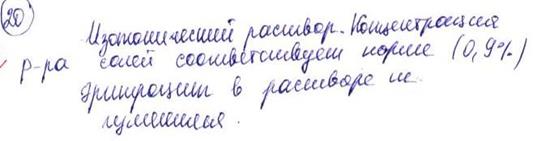 20
Изотонический раствор. Концентрация
р-ра солей соответствует норме (0,9%)
Эритроциты в растворе не